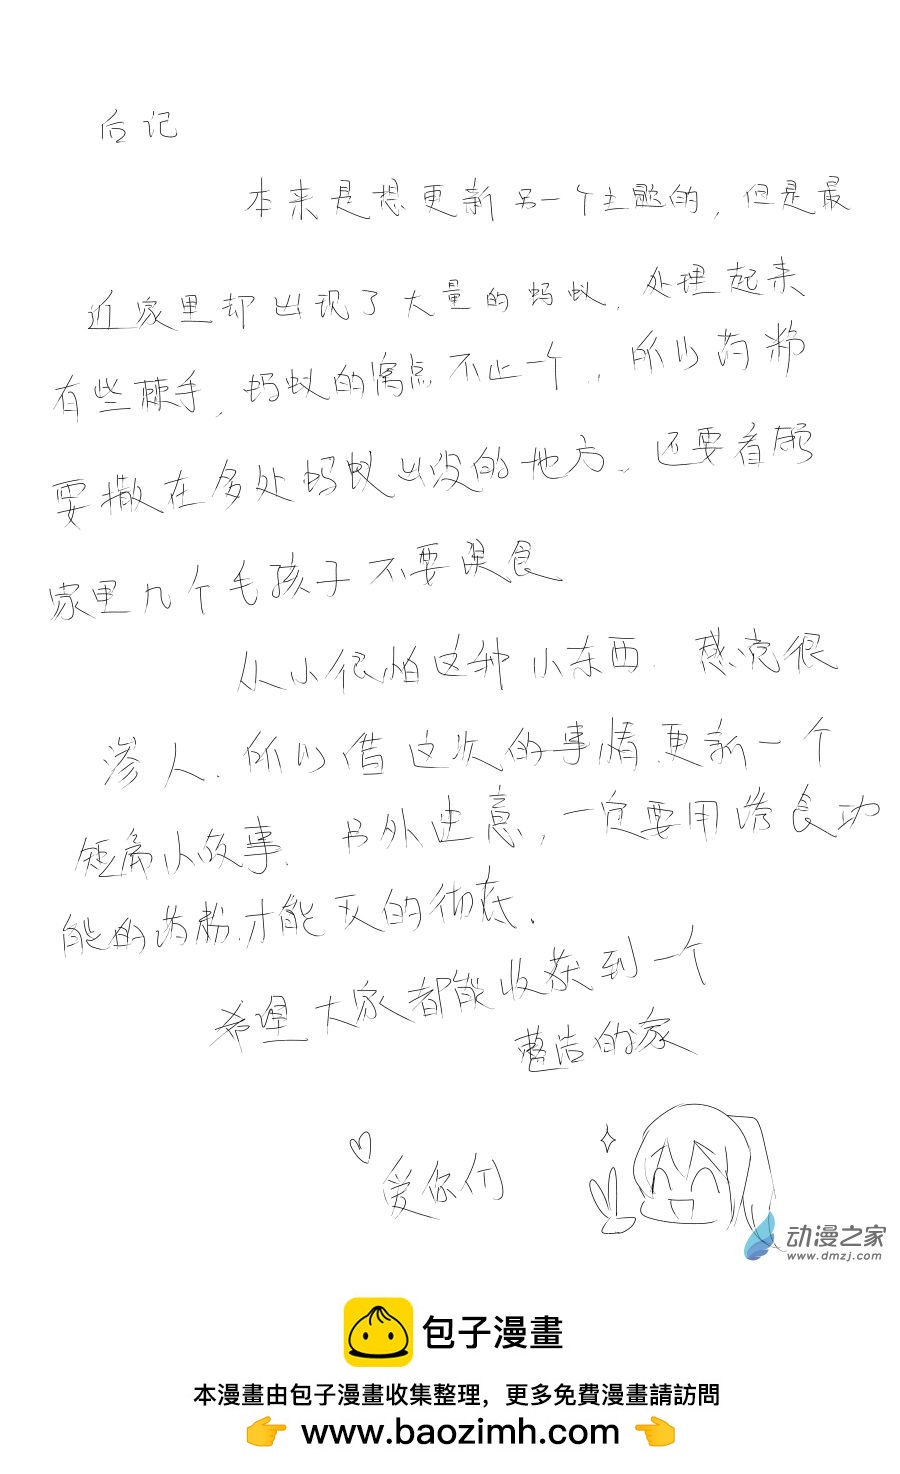 后记
本来是想更新另一个主题的,但是最
近家里却出现了大量的蚂蚁.处理起来
有些棘手,蚂蚁的窝点不止一个..所以药粉
要撒在多处蚂蚁出没的地方..还要看顾
家里几个毛孩子不要误食
从小很怕这种小东西.感觉很
渗人.所以借这次的事情更新一个
短篇小故事.另外注意,一定要用诱食功
能的药粉.才能灭的彻底.
希望大家都能收获到一个
整洁的家
爱你们
动漫之家
www.dmzj.com
包子漫畫
本漫畫由包子漫畫收集整理,更多免費漫畫請訪問
www.baozimh.com